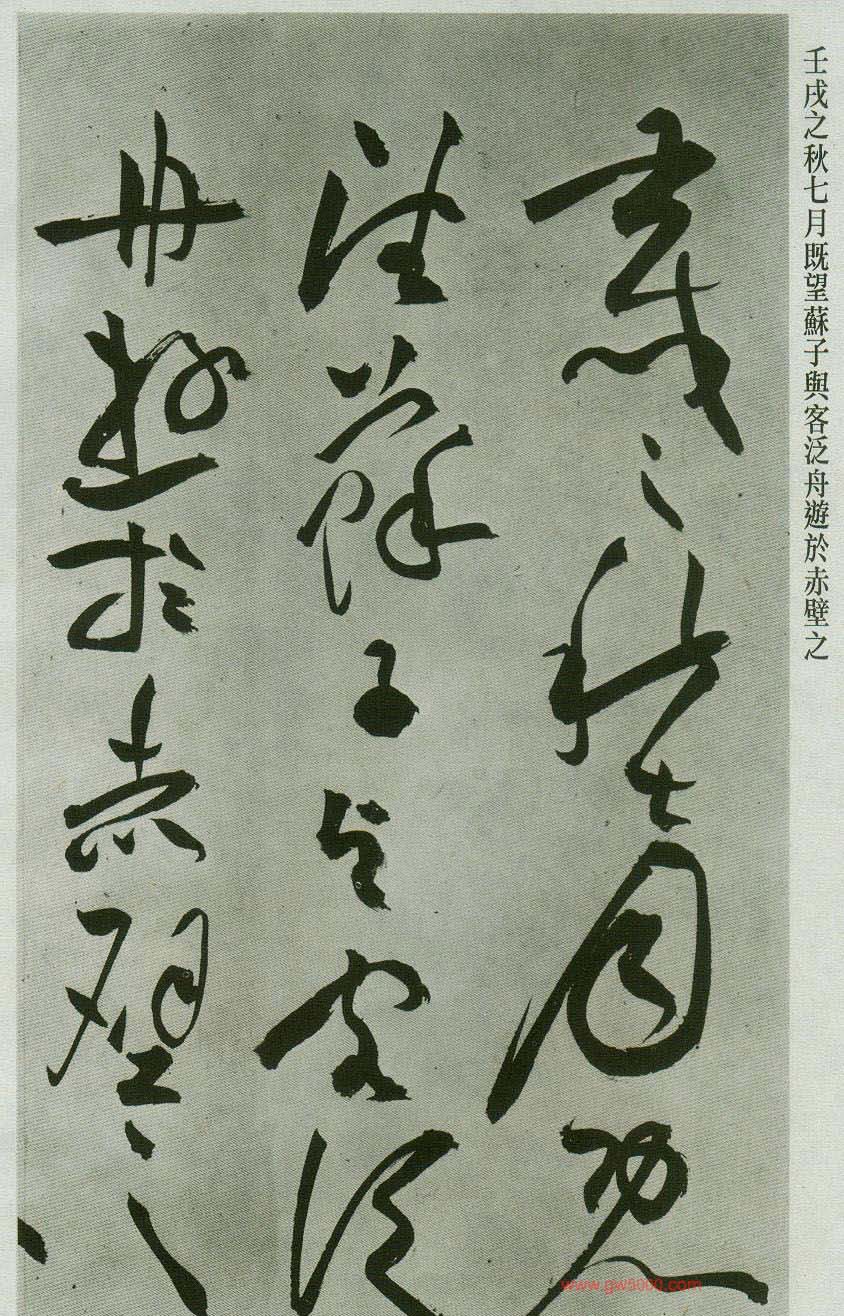 壬戌之秋七月既望蘇子與客泛舟遊於赤壁之
壬戌之秋七月既
望蘇子與客泛
舟遊於赤壁之
www.gw5000.com